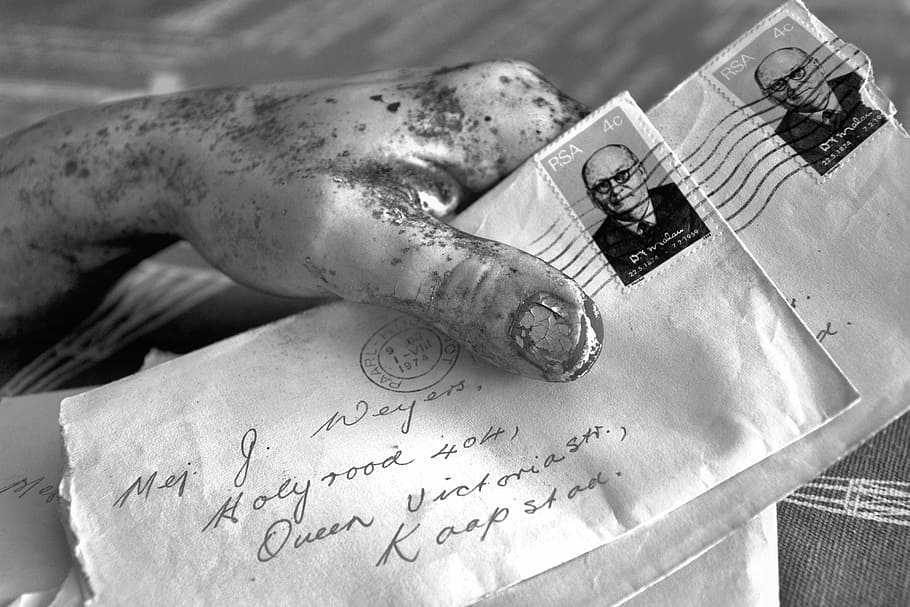 RSA 4c
D F Malan
22.5.1874 - 7.2.1959
RSA 4c
D F Malan
22.5.1874 - 7.2.1959
PAARL
1-VIII
1974
Mej. J. Weyers,
Holyrood 404,
Queen Victoriastr.,
Kaapstad.
d.
Mej